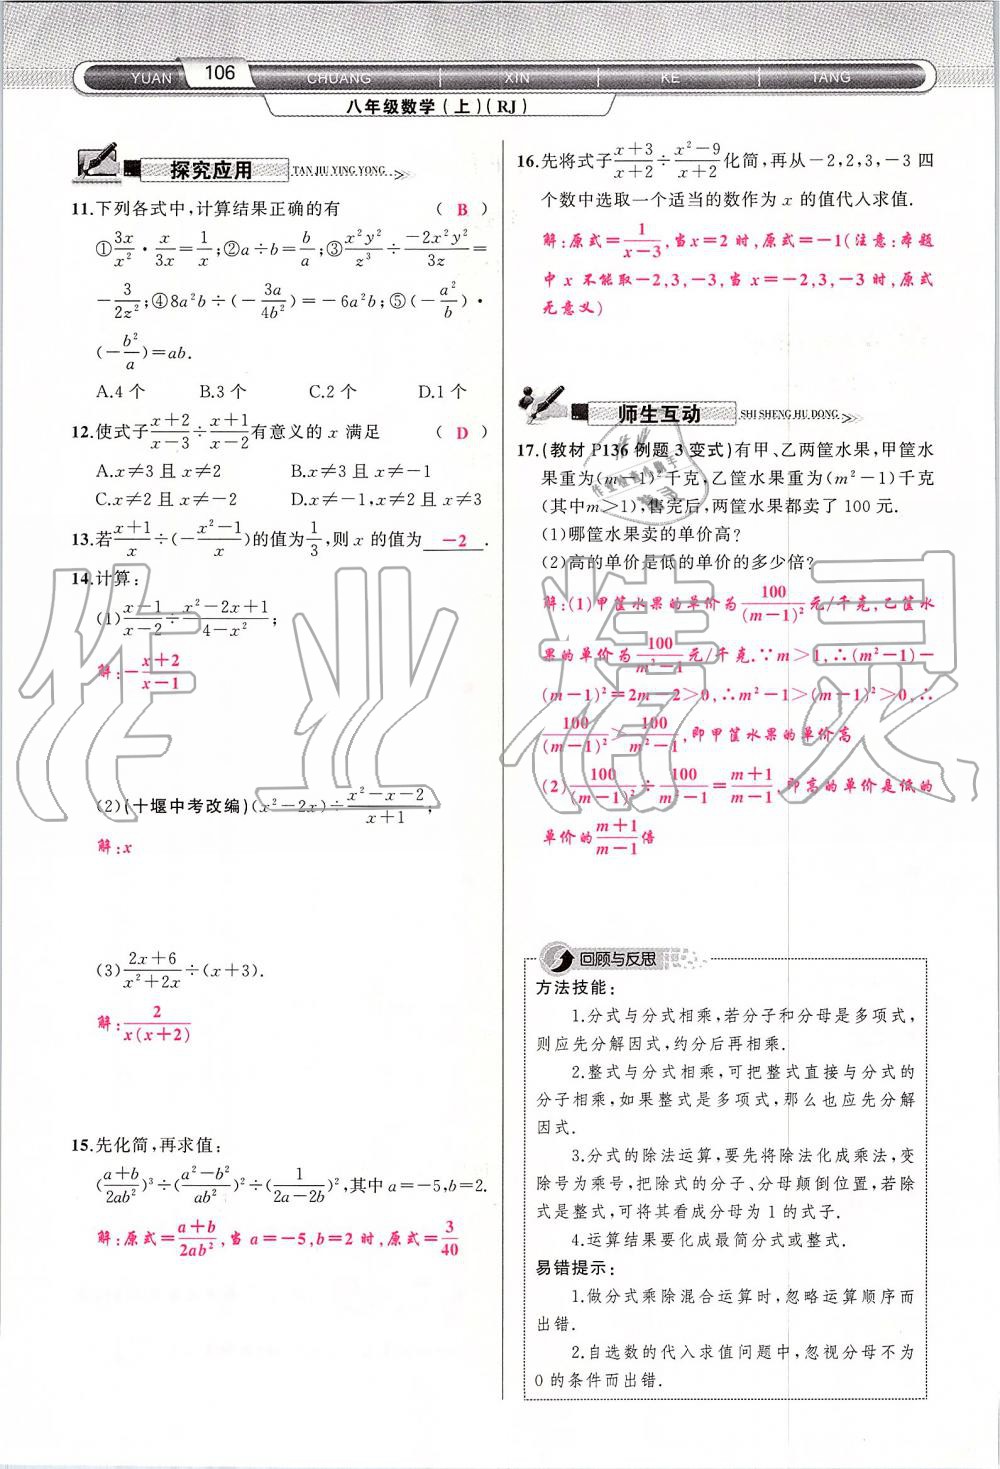 YUAN 106 CHUANG XIN KE TANG
八年级数学(上)(RJ)
探究应用 TAN JIU YING YONG
11.下列各式中,计算结果正确的有 ( B )
①3x/x²·x/3x=1/x;②a÷b=b/a;③x²y²/z³÷-2x²y²/3z=
-3/2z²;④8a²b÷(-3a/4b²)=-6a²b;⑤(-a²/b)·
(-b²/a)=ab.
A.4 个 B.3 个 C.2 个 D.1 个
12.使式子x+2/x-3÷x+1/x-2有意义的 x 满足 ( D )
A.x≠3 且 x≠2 B.x≠3 且 x≠-1
C.x≠2 且 x≠-1 D.x≠-1,x≠2 且 x≠3
13.若x+1/x÷(-x²-1/x)的值为1/3,则 x 的值为 -2 .
14.计算:
(1)x-1/x-2÷x²-2x+1/4-x²;
解:-x+2/x-1
(2)(十堰中考改编)(x²-2x)÷x²-x-2/x+1;
解:x
(3)2x+6/x²+2x÷(x+3).
解:2/x(x+2)
15.先化简,再求值:
(a+b/2ab²)³÷(a²-b²/ab²)²÷(1/2a-2b)²,其中 a=-5,b=2.
解:原式=a+b/2ab²,当 a=-5,b=2 时,原式=3/40
16.先将式子x+3/x+2÷x²-9/x+2化简,再从-2,2,3,-3 四
个数中选取一个适当的数作为 x 的值代入求值.
解:原式=1/x-3,当 x=2 时,原式=-1(注意:本题
中 x 不能取-2,3,-3,当 x=-2,3,-3 时,原式
无意义)
师生互动 SHI SHENG HU DONG
17.(教材 P136 例题 3 变式)有甲、乙两筐水果,甲筐水
果重为(m-1)²千克,乙筐水果重为(m²-1)千克
(其中m>1),售完后,两筐水果都卖了 100 元.
(1)哪筐水果卖的单价高?
(2)高的单价是低的单价的多少倍?
解:(1)甲筐水果的单价为100/(m-1)²元/千克,乙筐水
果的单价为100/m²-1元/千克.∵m>1,∴(m²-1)-
(m-1)²=2m-2>0,∴m²-1>(m-1)²>0,∴
100/(m-1)²>100/m²-1,即甲筐水果的单价高
(2)100/(m-1)²÷100/m²-1=m+1/m-1,即高的单价是低的
单价的m+1/m-1倍
回顾与反思
方法技能:
1.分式与分式相乘,若分子和分母是多项式,
则应先分解因式,约分后再相乘.
2.整式与分式相乘,可把整式直接与分式的
分子相乘,如果整式是多项式,那么也应先分解
因式.
3.分式的除法运算,要先将除法化成乘法,变
除号为乘号,把除式的分子、分母颠倒位置,若除
式是整式,可将其看成分母为 1 的式子.
4.运算结果要化成最简分式或整式.
易错提示:
1.做分式乘除混合运算时,忽略运算顺序而
出错.
2.自选数的代入求值问题中,忽视分母不为
0 的条件而出错.
作业精灵